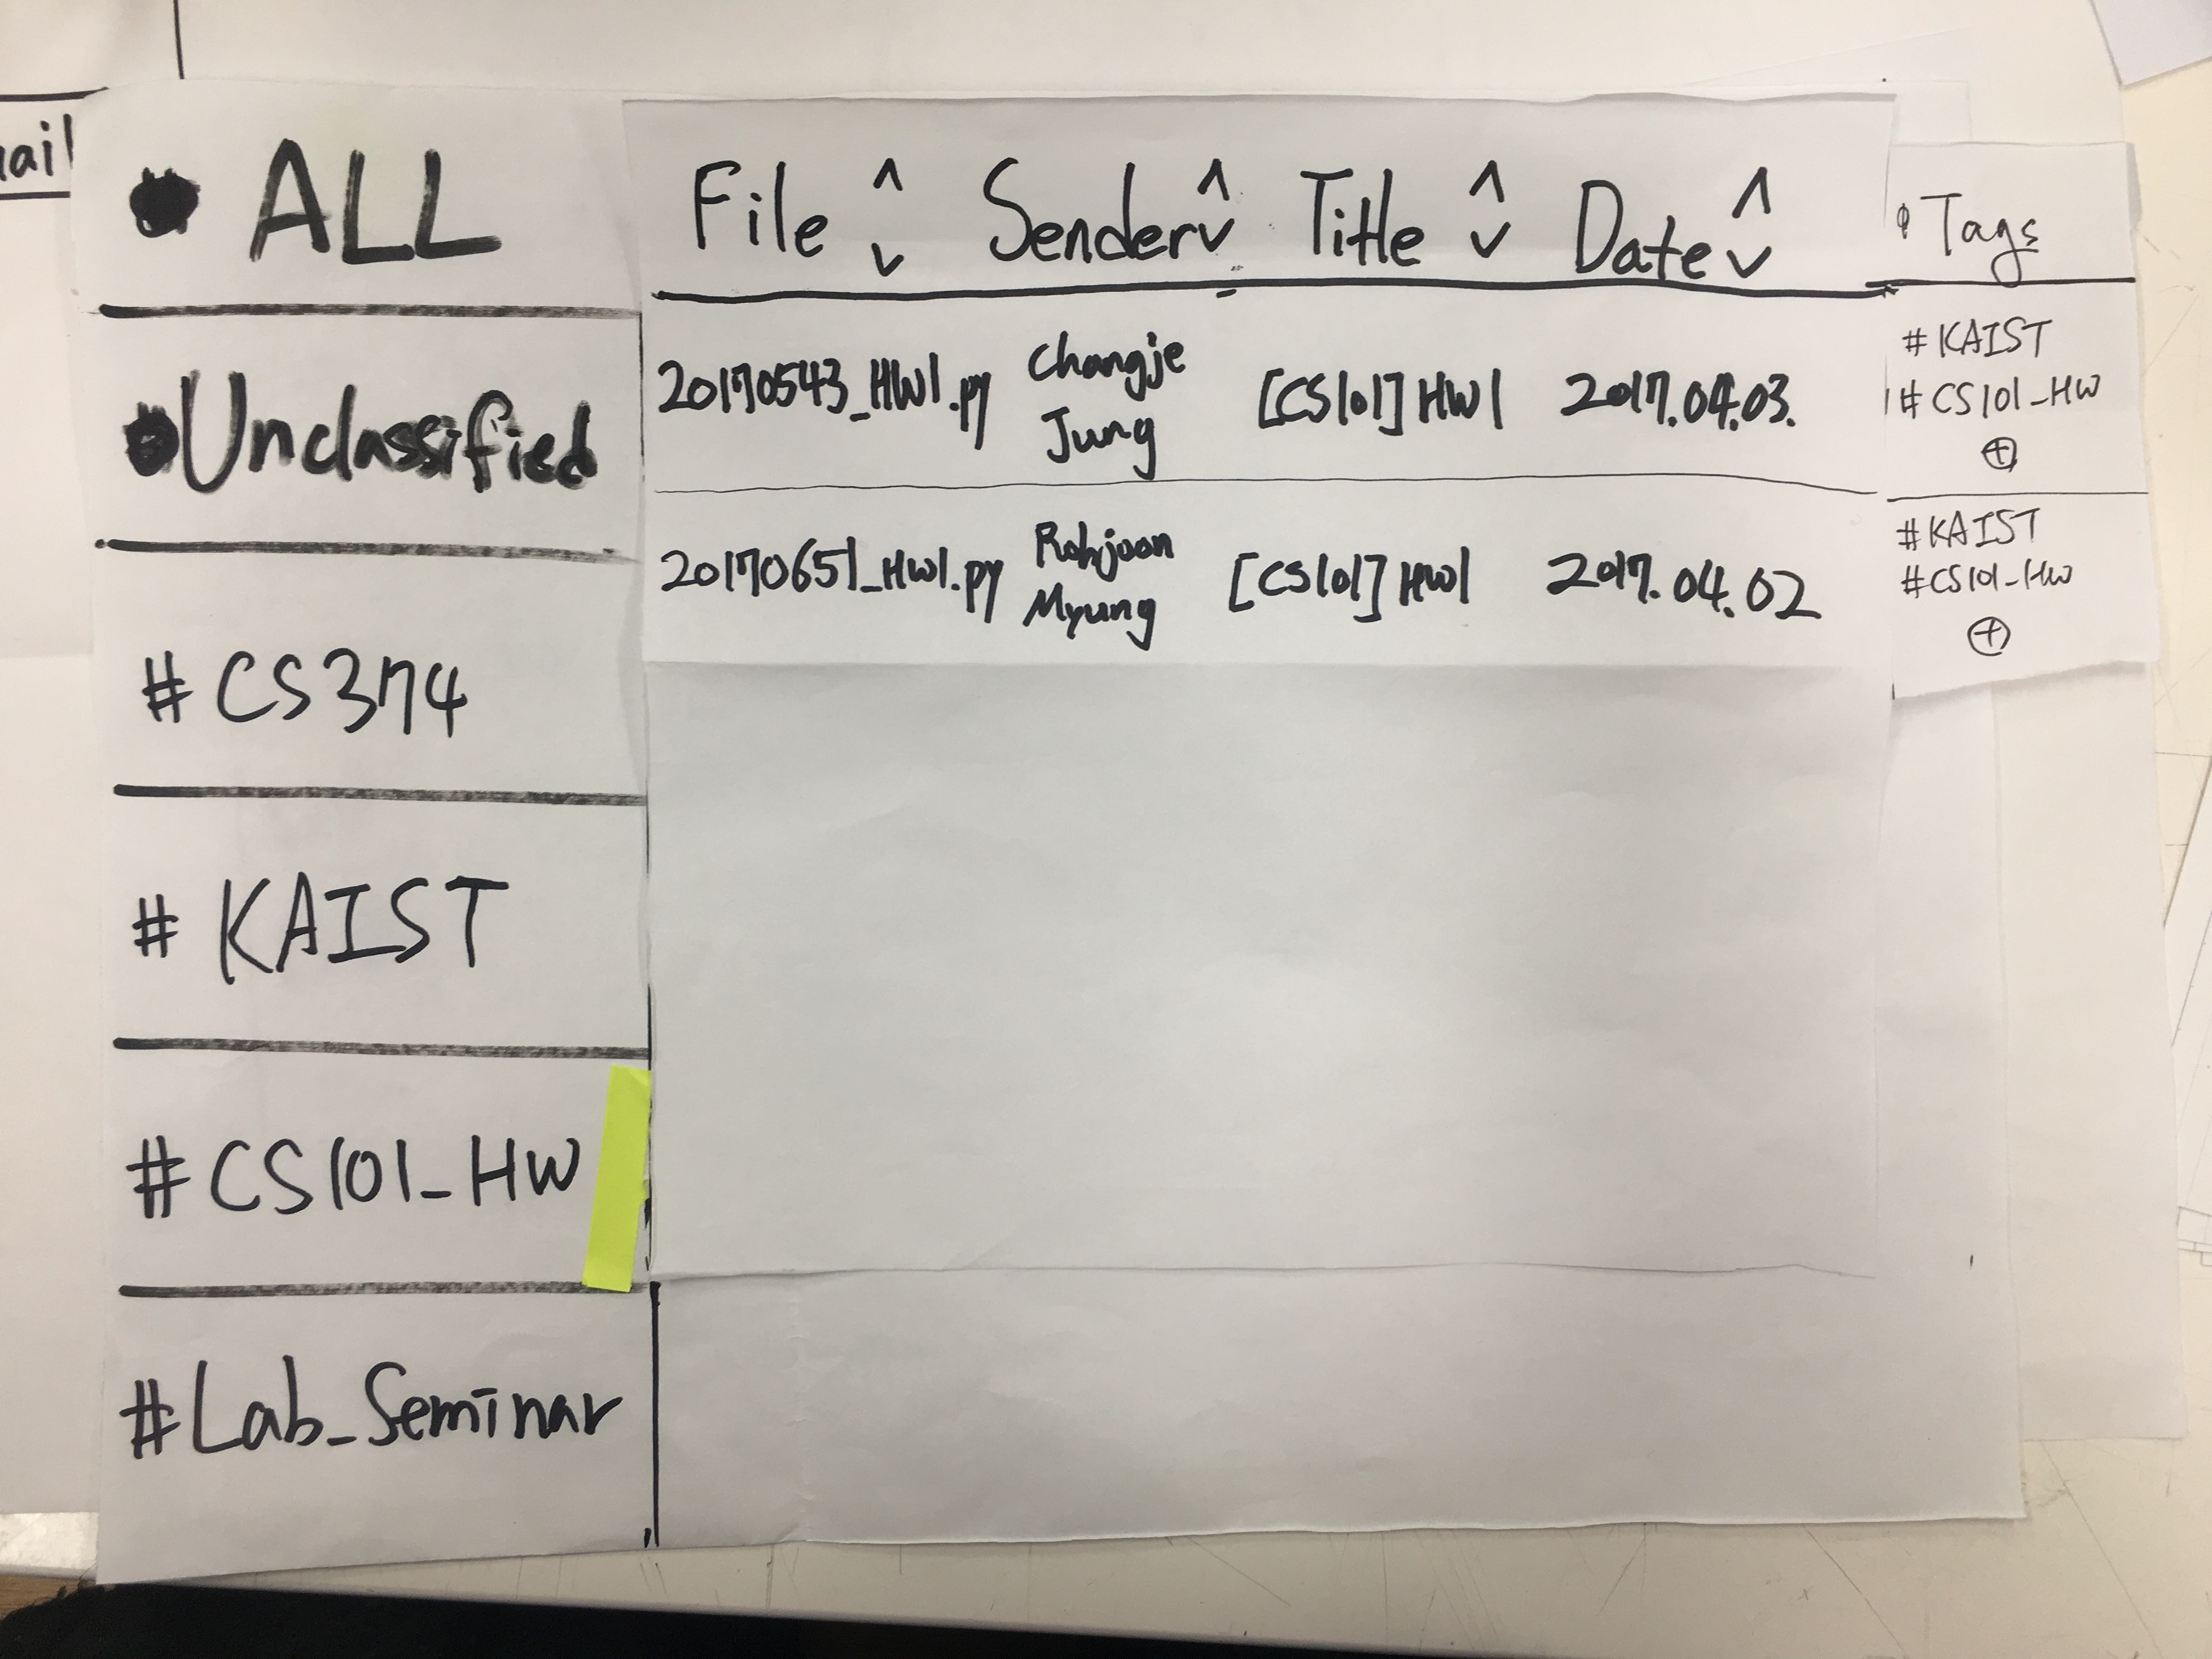 ail
ALL
Unclassified
# CS374
# KAIST
# CS101_HW
#Lab_Seminar
File ^ v Sender ^ v Title ^ v Date ^ v Tags
20170543_HW1.py Changje Jung [CS101] HW1 2017.04.03. #KAIST #CS101_HW +
20170651_HW1.py Rohjoon Myung [CS101] HW1 2017.04.02 #KAIST #CS101_HW +